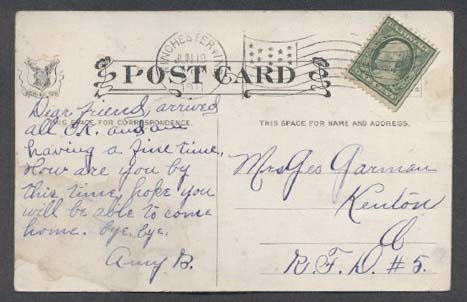 WINCHESTER
JUN 19
1911
POST CARD
THIS SPACE FOR CORRESPONDENCE.
THIS SPACE FOR NAME AND ADDRESS.
Dear friend, arrived
all O.K. and are
having a fine time.
How are you by
this time, hope you
will be able to come
home. bye. bye.
Amy B.
Mrs Geo Garman
Kenton
O
R.F.D. #5.